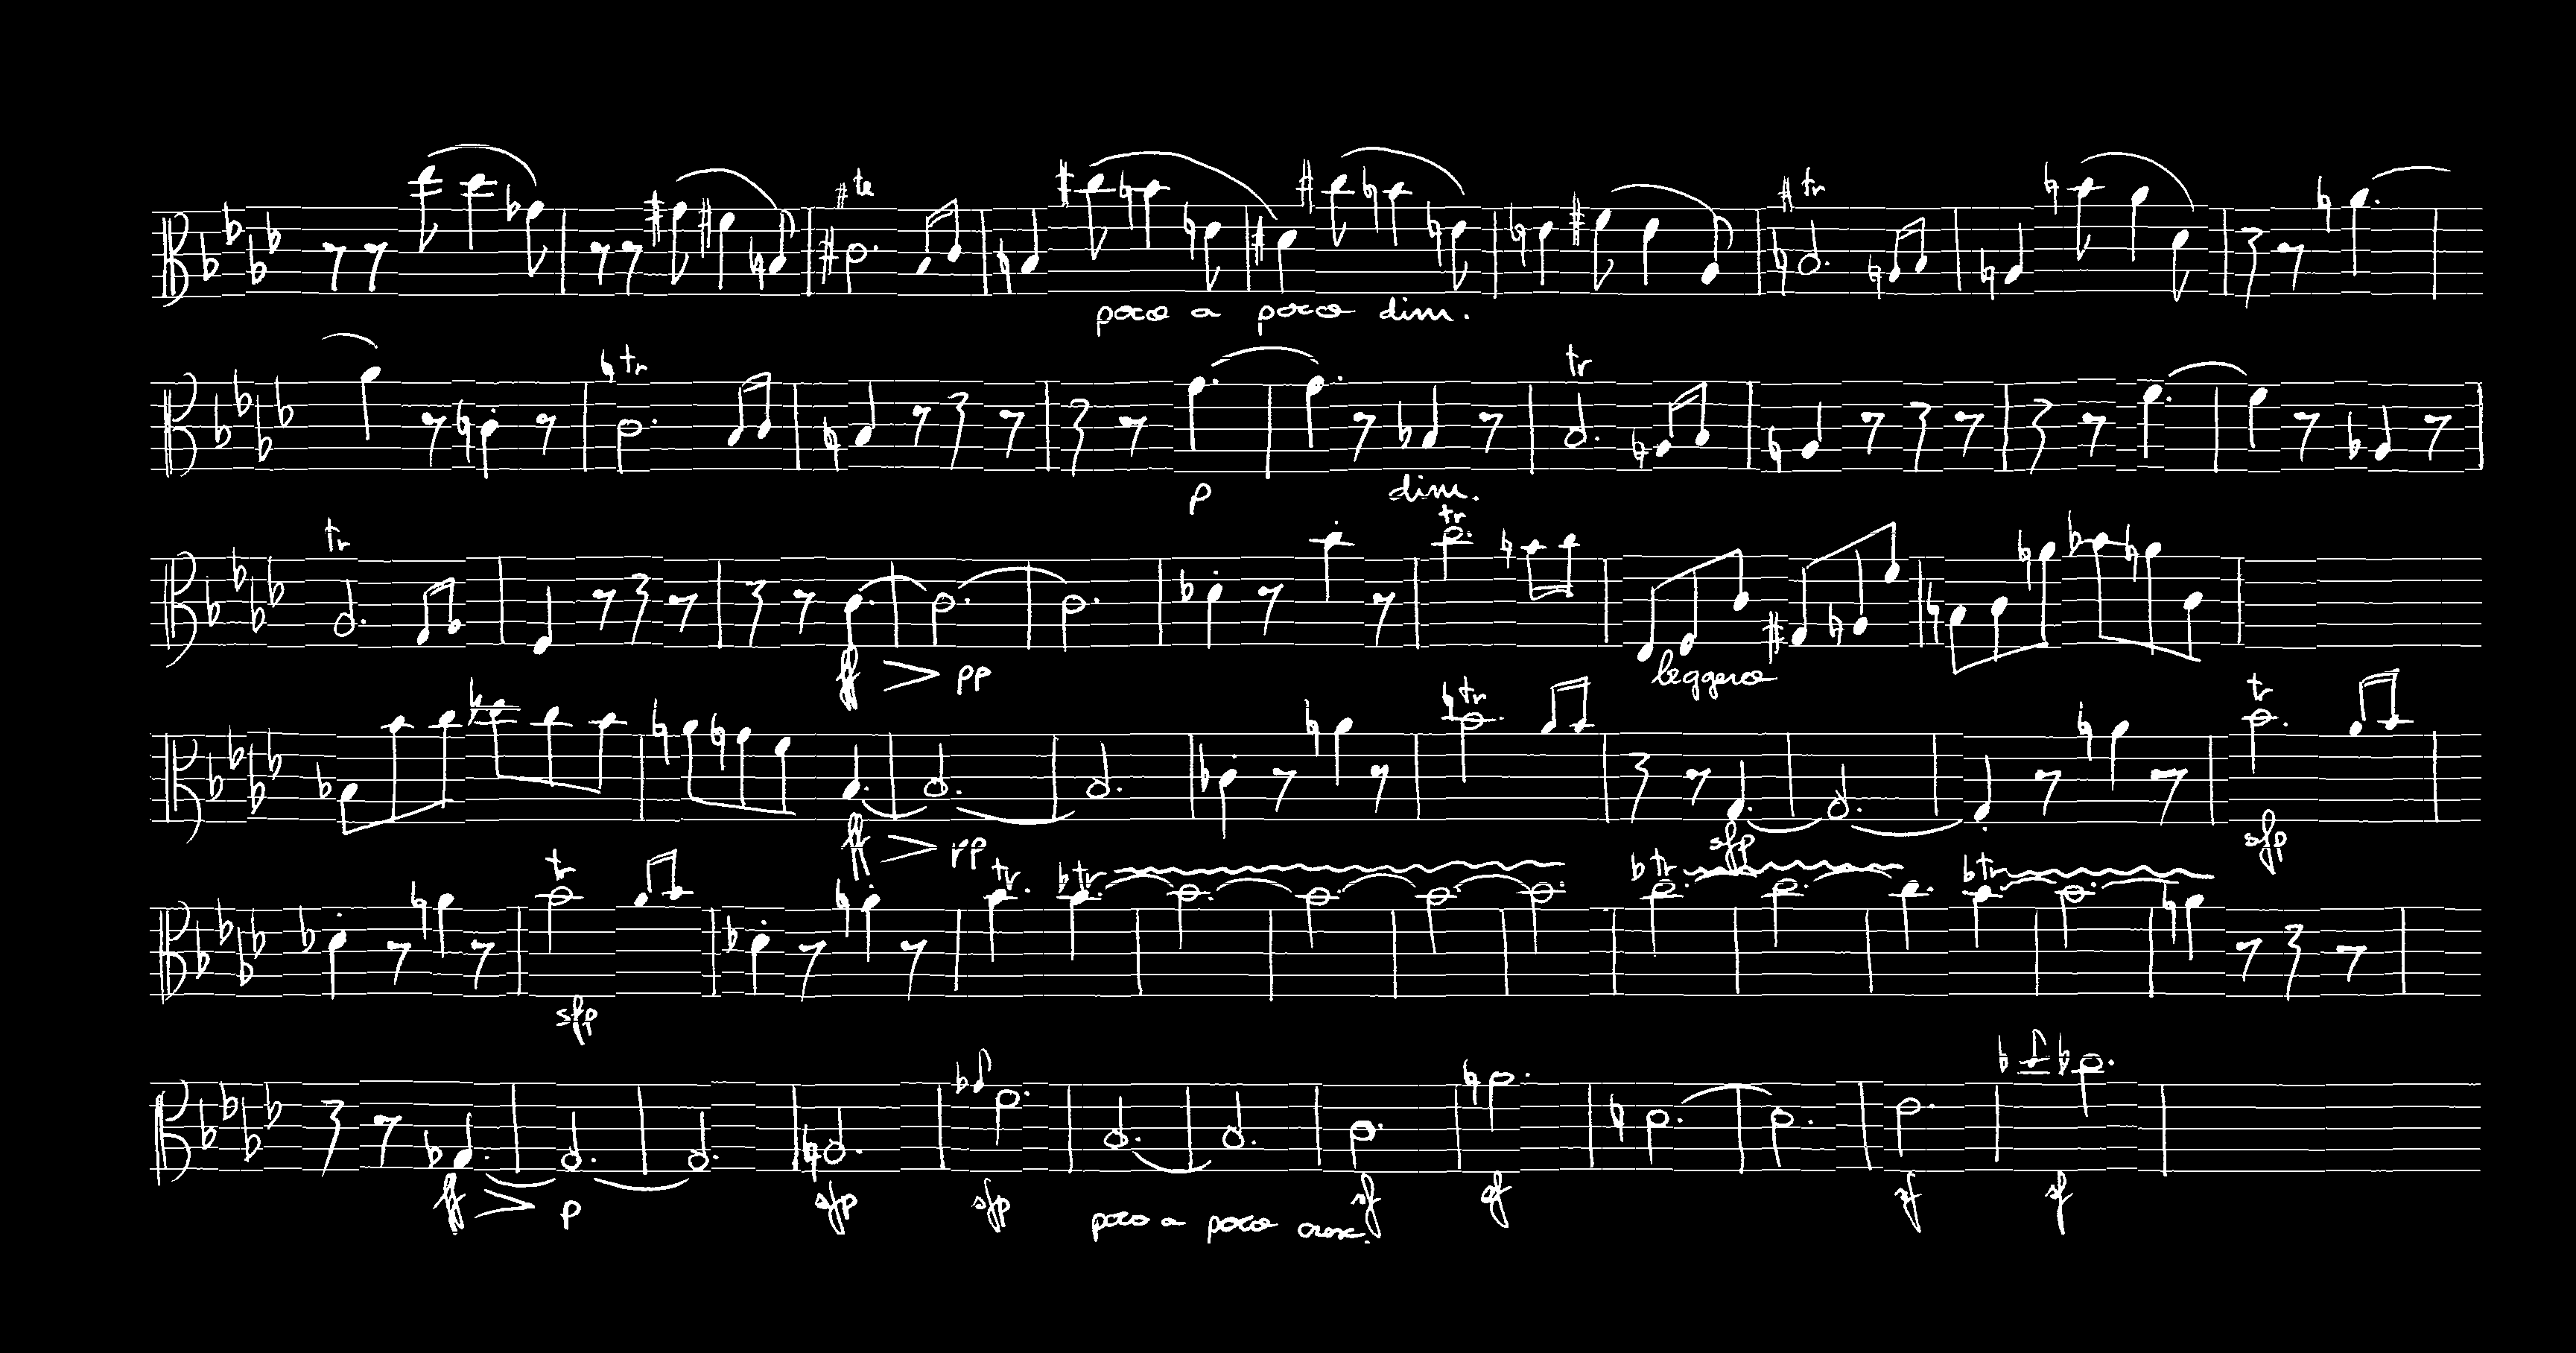 tr
poco a poco dim.
tr
tr
tr
p
dim.
tr
tr
ff > pp
leggero
tr
tr
ff > pp
sfp
sfp
tr
tr
tr
tr
tr
sfp
ff > p
sfp
sfp
poco a poco cresc.
sf
sf
sf
sf